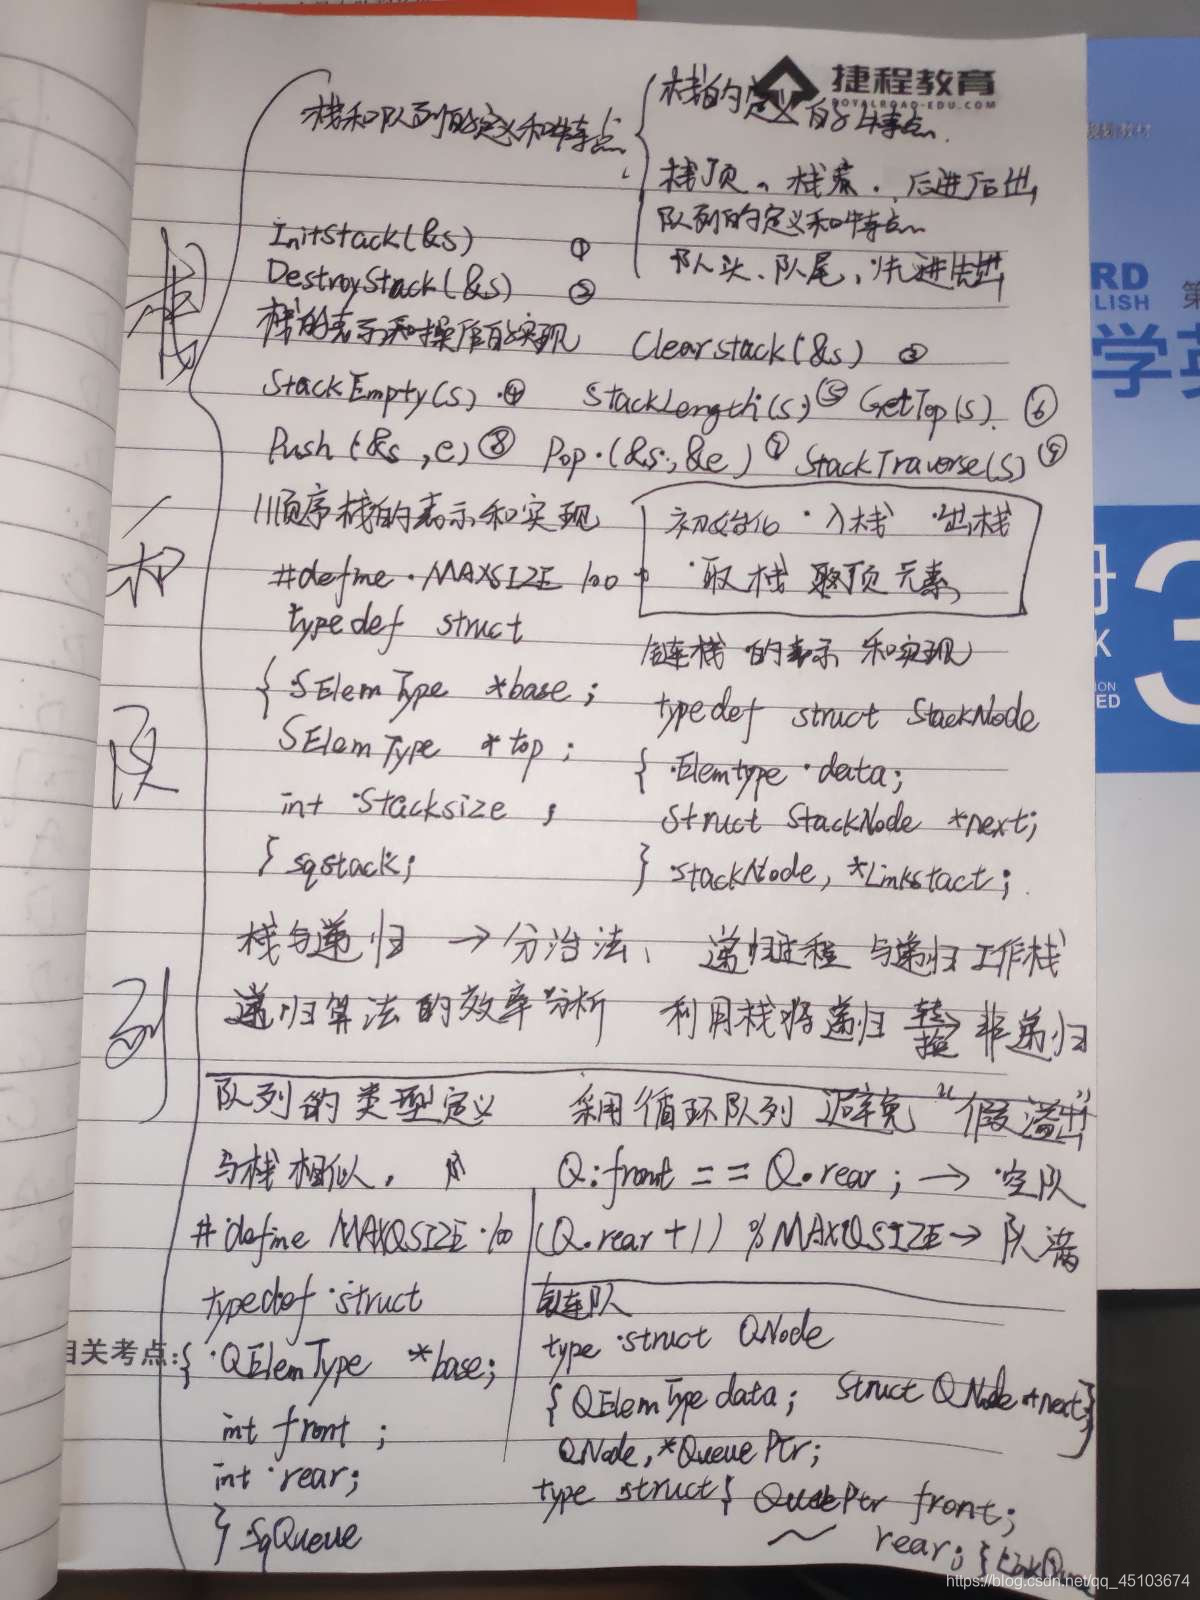 捷程教育
ROYALROAD-EDU.COM
栈和队列的定义和特点
栈的定义和特点
栈顶、栈底、后进后出
队列的定义和特点
队头、队尾、先进先出
栈和队列
InitStack(&S) ①
DestroyStack(&S) ②
栈的表示和操作的实现 ClearStack(&S) ③
StackEmpty(S) ④ StackLength(S) ⑤ GetTop(S) ⑥
Push(&S,e) ⑧ Pop(&S,&e) ⑦ StackTraverse(S) ⑨
顺序栈的表示和实现
初始化 入栈 出栈
取栈顶元素
#define MAXSIZE 100
typedef struct
{ SElemType *base;
SElemType *top;
int stacksize;
} sqstack;
链栈的表示和实现
typedef struct StackNode
{ Elemtype data;
Struct StackNode *next;
} StackNode, *Linkstact;
栈与递归 → 分治法、递归过程与递归工作栈
递归算法的效率分析 利用栈将递归 转换→ 非递归
队列的类型定义 采用循环队列避免"假溢出"
与栈相似, Q.front == Q.rear; → 空队
#define MAXQSIZE 100 (Q.rear+1) % MAXQSIZE → 队满
typedef struct
相关考点:
{ QElemType *base;
int front;
int rear;
} SqQueue
链队
type struct QNode
{ QElemType data; struct QNode *next; }
QNode, *QueuePtr;
type struct { QueuePtr front;
~ rear; }
RD
LISH
第
学英
册
K
3
ION
ED
教材
https://blog.csdn.net/qq_45103674